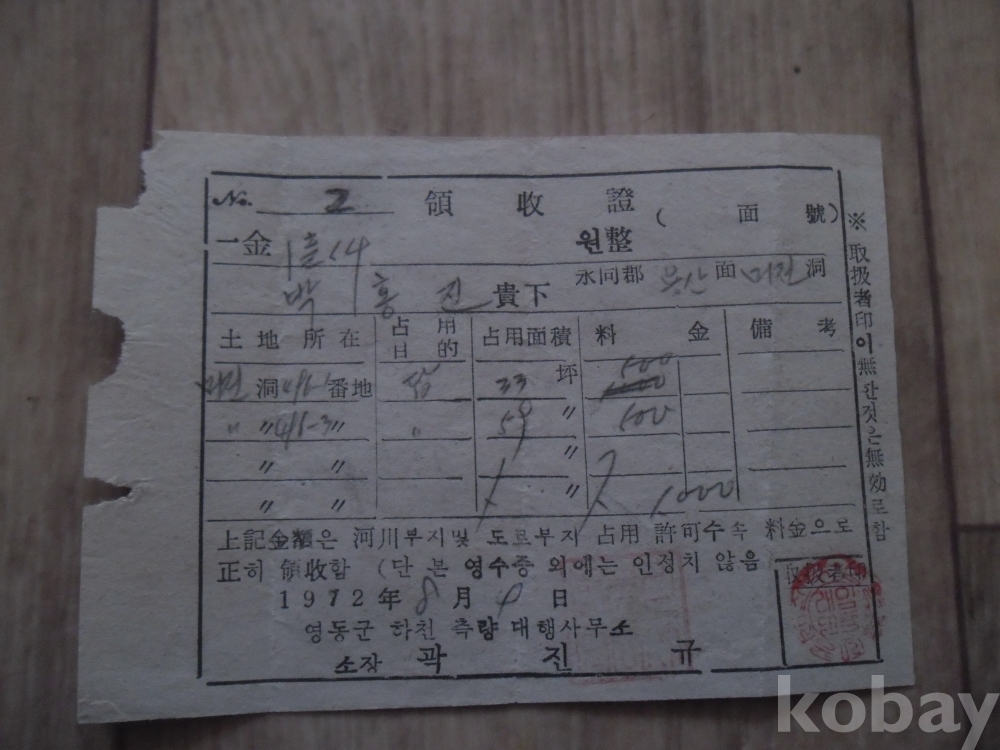 No. 2 領收證 ( 面 號)
一金 원整
永同郡 용산面 미전洞
박 홍 진 貴下
土地所在 占用目的 占用面積 料金 備考
미전洞 416-1番地 답 33坪 500
〃 〃 〃 59〃 500
〃 〃 〃
〃 〃 〃 1000
上記金額은 河川부지및 도로부지 占用 許可수속 料金으로
正히 領收함 (단 본 영수증 외에는 인정치 않음
1972年 8月 9日
영동군 하천 측량 대행사무소
소장 곽 진 규
取扱者印
※取扱者印이無한것은無効로함
kobay